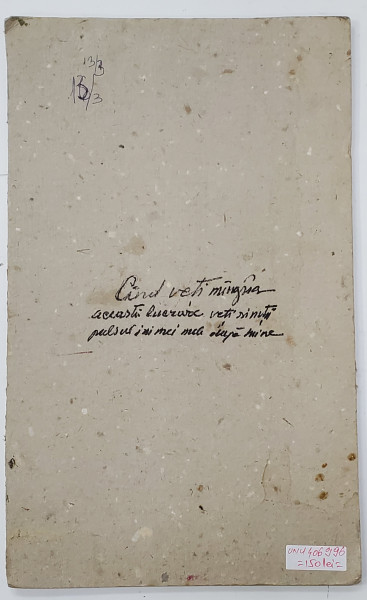 13/3
15/3
Cînd veți mîngîia
această lucrare veți simți
pulsul inimei mele după mine
UNU406996
=150lei=